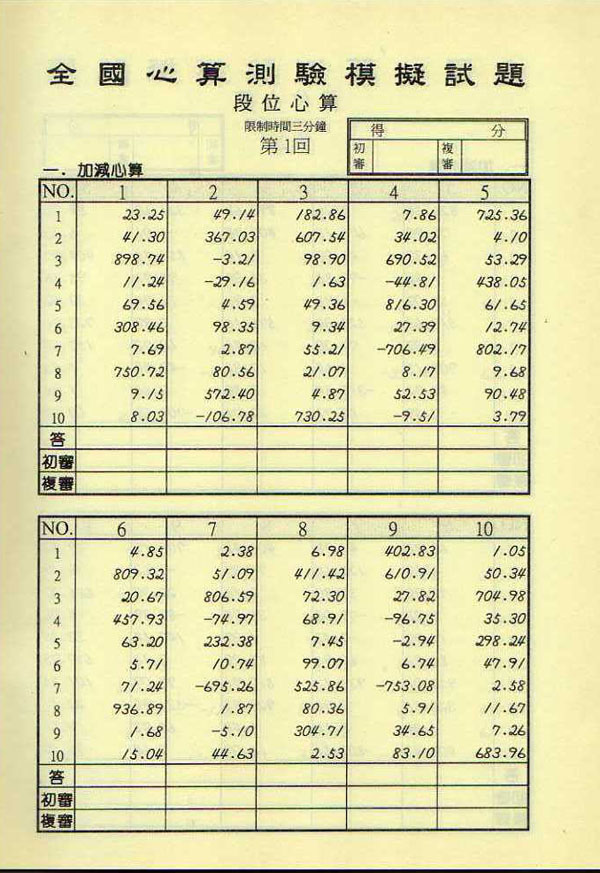 全國心算測驗模擬試題
段位心算
限制時間三分鐘
第1回
得 分
初審 複審
一. 加減心算
NO. 1 2 3 4 5
1 23.25 49.14 182.86 7.86 725.36
2 41.30 367.03 607.54 34.02 4.10
3 898.74 -3.21 98.90 690.52 53.29
4 11.24 -29.16 1.63 -44.81 438.05
5 69.56 4.59 49.36 816.30 61.65
6 308.46 98.35 9.34 27.39 12.74
7 7.69 2.87 55.21 -706.49 802.17
8 750.72 80.56 21.07 8.17 9.68
9 9.15 572.40 4.87 52.53 90.48
10 8.03 -106.78 730.25 -9.51 3.79
答
初審
複審
NO. 6 7 8 9 10
1 4.85 2.38 6.98 402.83 1.05
2 809.32 51.09 411.42 610.91 50.34
3 20.67 806.59 72.30 27.82 704.98
4 457.93 -74.97 68.91 -96.75 35.30
5 63.20 232.38 7.45 -2.94 298.24
6 5.71 10.74 99.07 6.74 47.91
7 71.24 -695.26 525.86 -753.08 2.58
8 936.89 1.87 80.36 5.91 11.67
9 1.68 -5.10 304.71 34.65 7.26
10 15.04 44.63 2.53 83.10 683.96
答
初審
複審